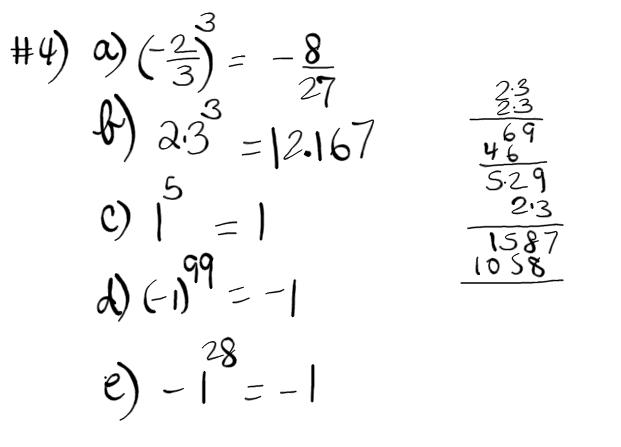 #4) a) (-2/3)³ = -8/27
b) 2.3³ = 12.167
c) 1⁵ = 1
d) (-1)⁹⁹ = -1
e) -1²⁸ = -1
2.3
2.3
69
46
5.29
2.3
1587
1058